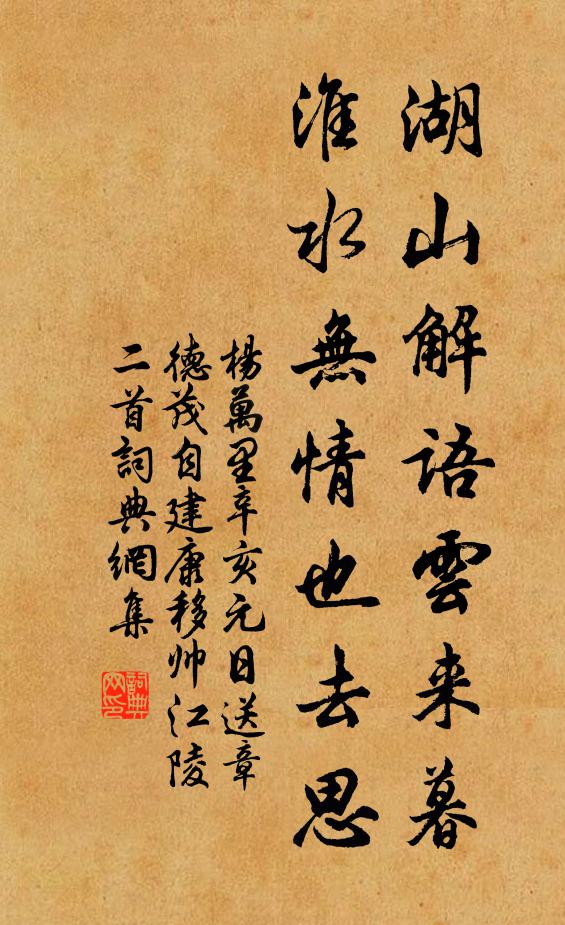 湖山解語雲来暮
淮水無情也去思
楊萬里辛亥元日送章
德茂自建康移帅江陵
二首詞典網集
詞典网印